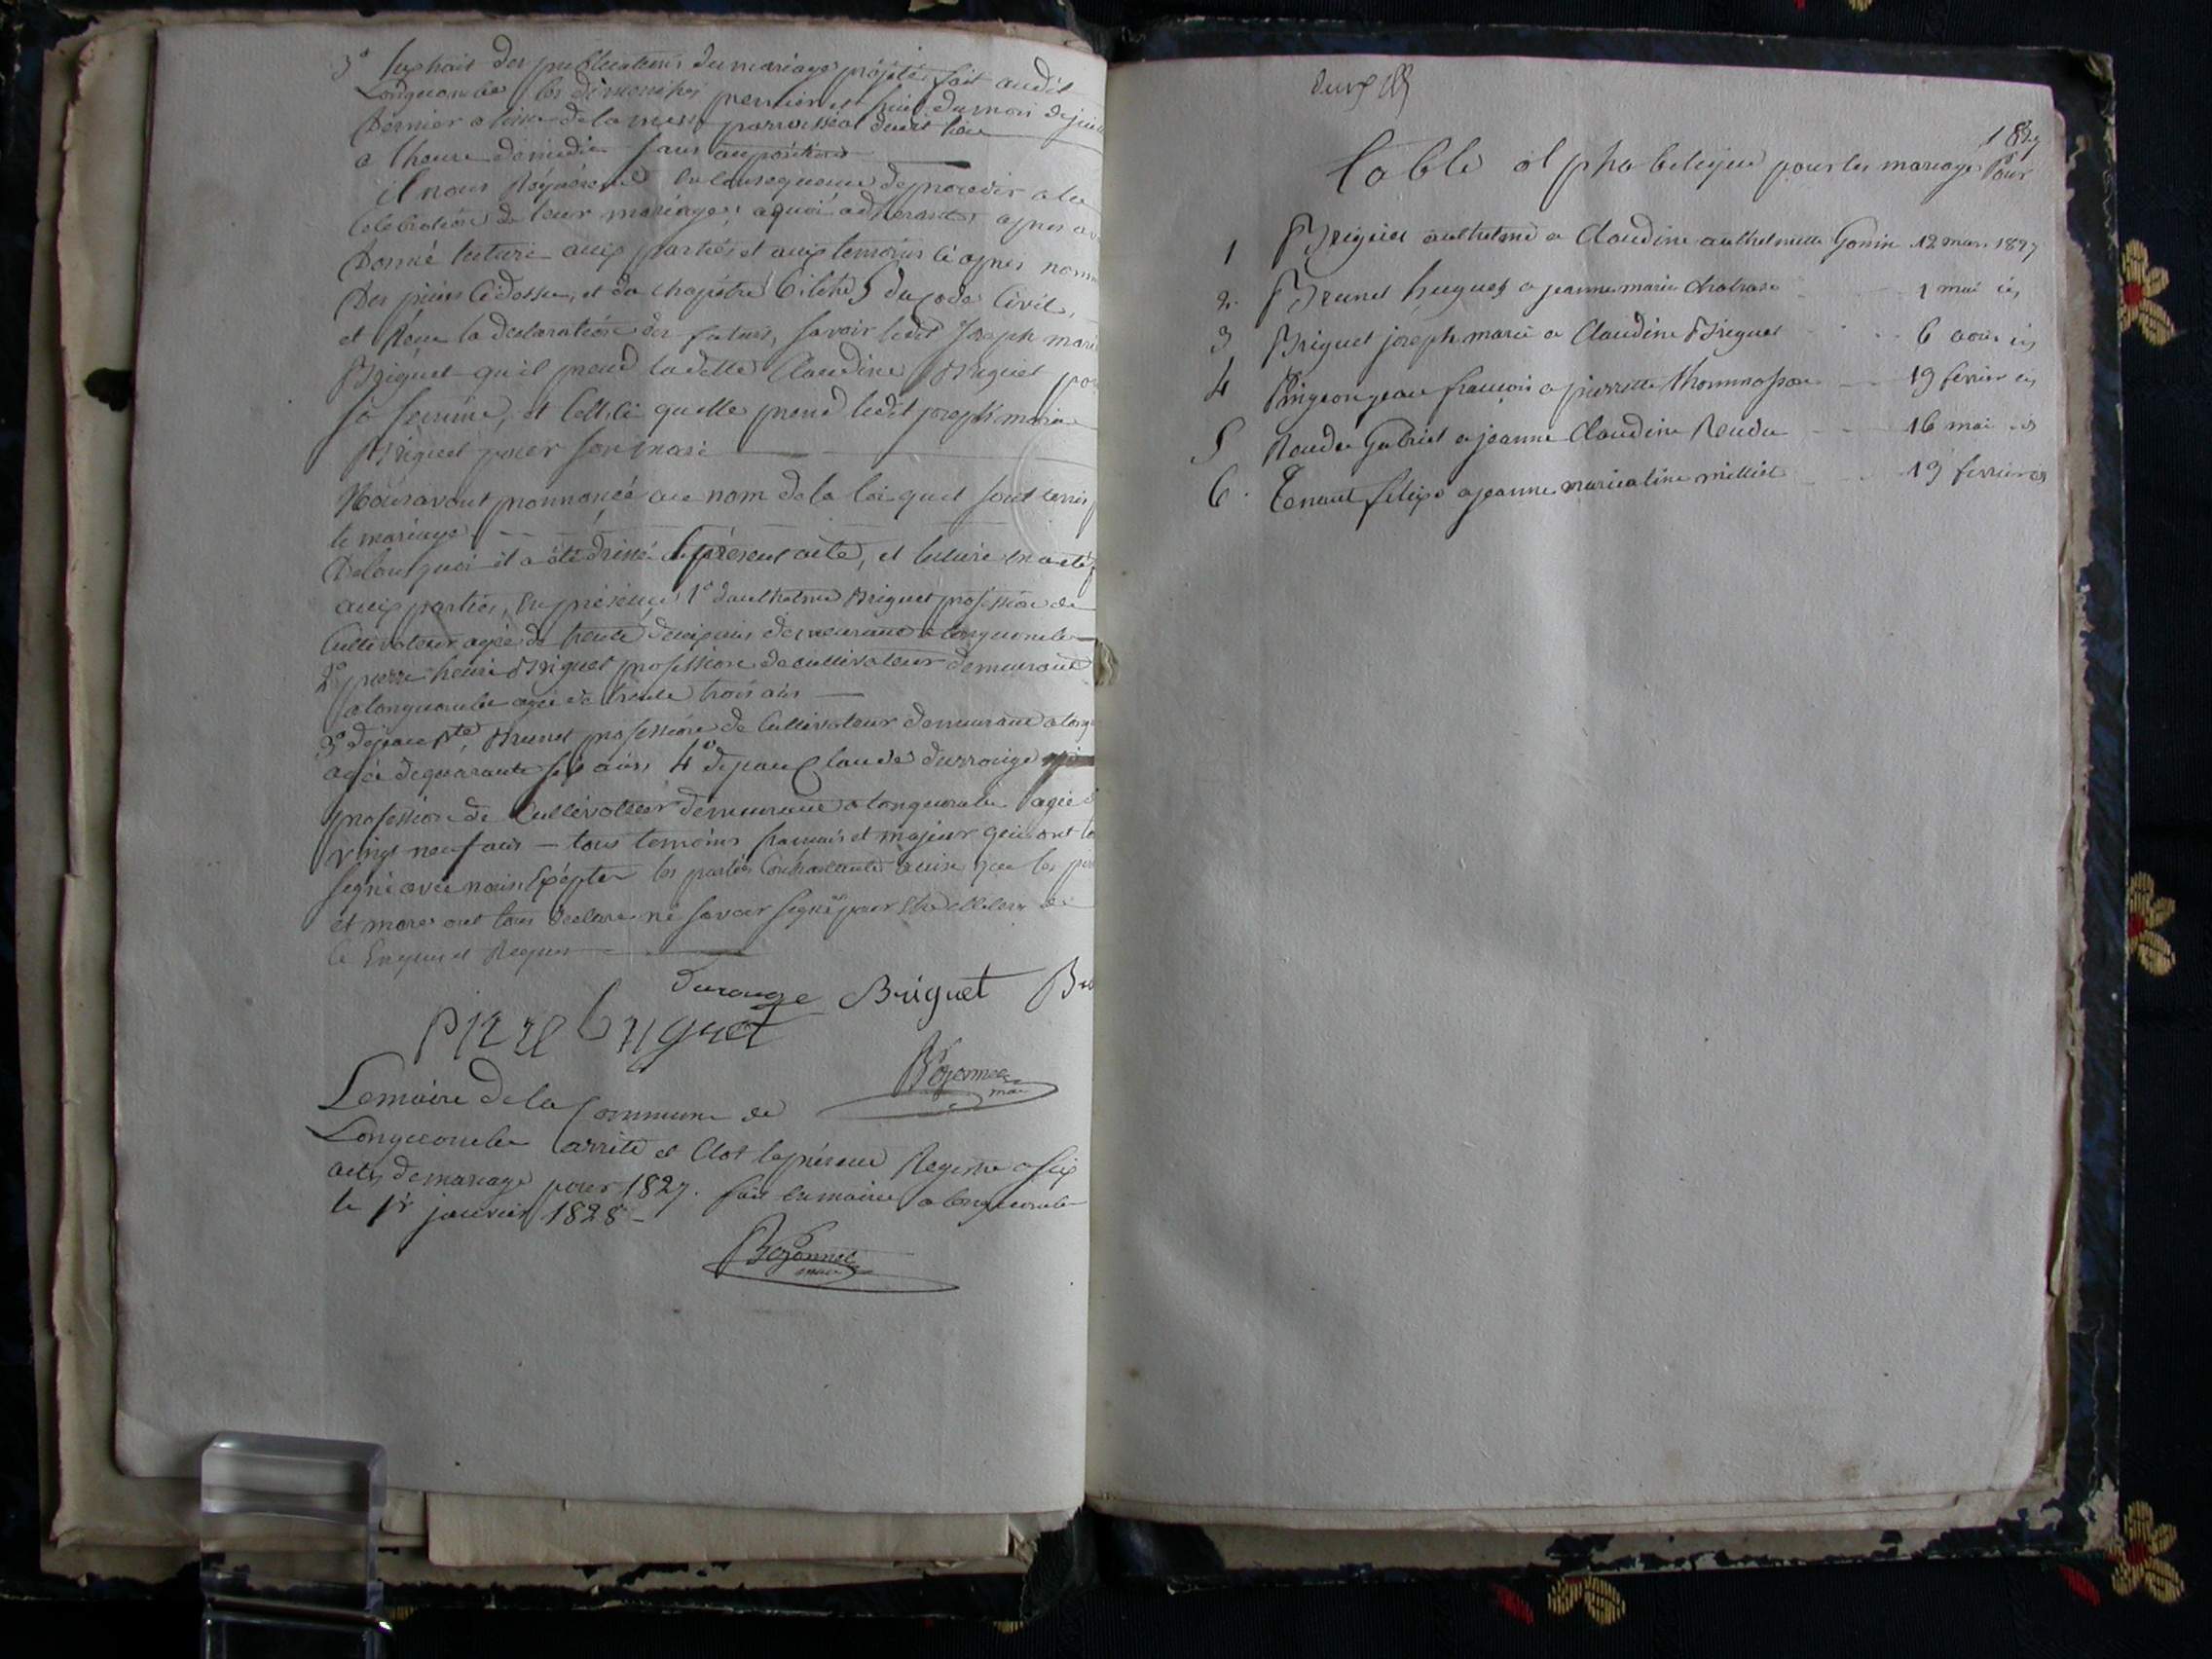 3° Lextrait des publications du mariage projeté, fait audit
Longecombe les dimanches premier et huit du mois de juill
Dernier a lissue de la messe parroissial dudit lieu
a lheure de midi sans oposition
il nous Requérent en Consequence de proceder a la
Celebration de leur mariage; a quoi adherants apres av
Donné lecture aux parties et aux temoins ci apres nomm
Des pieces ci dessus, et du chapitre 6 titre 5 du code Civil,
et Reçu la declaration des futurs, savoir ledit Joseph marie
Briguet qu'il prend ladette Claudine Briguet pou
sa femme, et celleci quelle prend ledit joseph marie
Briguet pour son mari
Nous avont pronnoncé au nom de la loi quil sont unis p
le mariage
De tout quoi il a été dressé le present acte, et lecture en a été
aux parties, En présence 1° danthelme Briguet profession de
Cultivateur agée de trente demeurant a longecombe
2° pierre henri Briguet profession de cultivateur demeurant
a longecombe agée de trente trois ans
3° de jean Bte Brunet profession de Cultivateur demeurant a long
agée de quarante ans 4° de jean Claude Durrouge
profession de Cultivateur demeurant a longecombe agée d
vingt neuf ans — tous temoins francais et majeur qui ont
segné avec nous Exépter les parties Contractante que les per
et mere ont tous declare né savoir segné pour de
ce Enquis et Requis
Durouge Briguet Br
pierre briguet
Bozonnet
maire
Lemaire de la Commune de
Longecombe arrete et Clot le présent Registre a six
actes de mariage pour 1827. fait en mairie a longecombe
le 1er janvier 1828
Bozonnet
maire
1827
table alphabetique pour les mariage Pour
1 Briguet anthelme a Claudine anthelmette Gonin 12 mars 1827
2 Brunet hugues a jeanne marie 1 mai id
3 Briguet joseph marie a Claudine Briguet 6 aout id
4 Pingeon jean francois a pierrette thommasson 19 fevrier id
5 Rendu Gabriel a jeanne Claudine Rendu 16 mai id
6 Tenant felix a jeanne marie millet 19 fevrier id